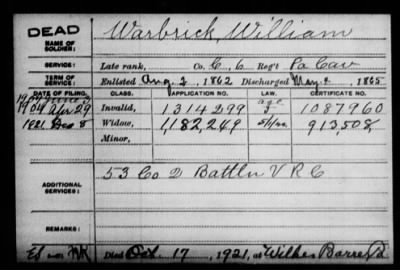 DEAD
NAME OF SOLDIER:
Warbrick, William
SERVICE:
Late rank, Co. C, 6 Reg't Pa Cav
TERM OF SERVICE:
Enlisted Aug 2, 1862 Discharged May 2, 1865
DATE OF FILING. CLASS. APPLICATION NO. LAW. CERTIFICATE NO.
1904 Apr 29 Invalid, 1314299 age 1087960
1921 Dec 8 Widow, 1,182,249 913,508
Minor,
ADDITIONAL SERVICES:
53 Co 2 Battln V R C
REMARKS:
Died Oct. 17, 1921, at Wilkes Barre, Pa